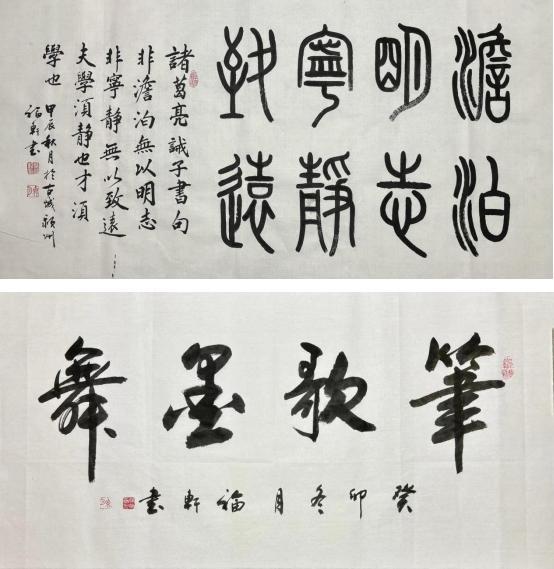 澹泊
明志
寧靜
致遠
諸葛亮誡子書句
非澹泊無以明志
非寧静無以致遠
夫學湏静也才湏
學也
甲辰秋月於古城潁州
福軒書
筆歌墨舞
癸卯冬月福軒書